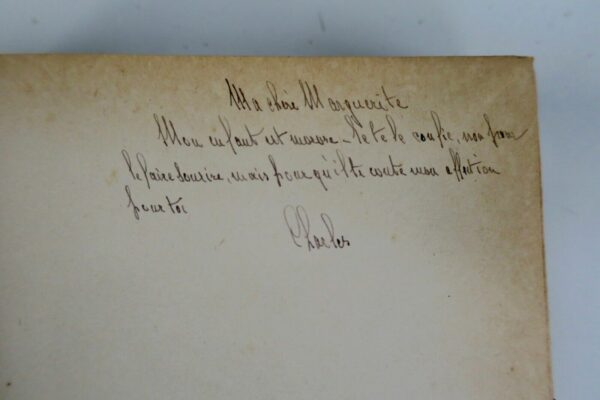 Ma chère Marguerite
Mon enfant est morose _ Je te le confie, non pour
le faire sourire, mais pour qu'il te conte mon affection
pour toi
Charles